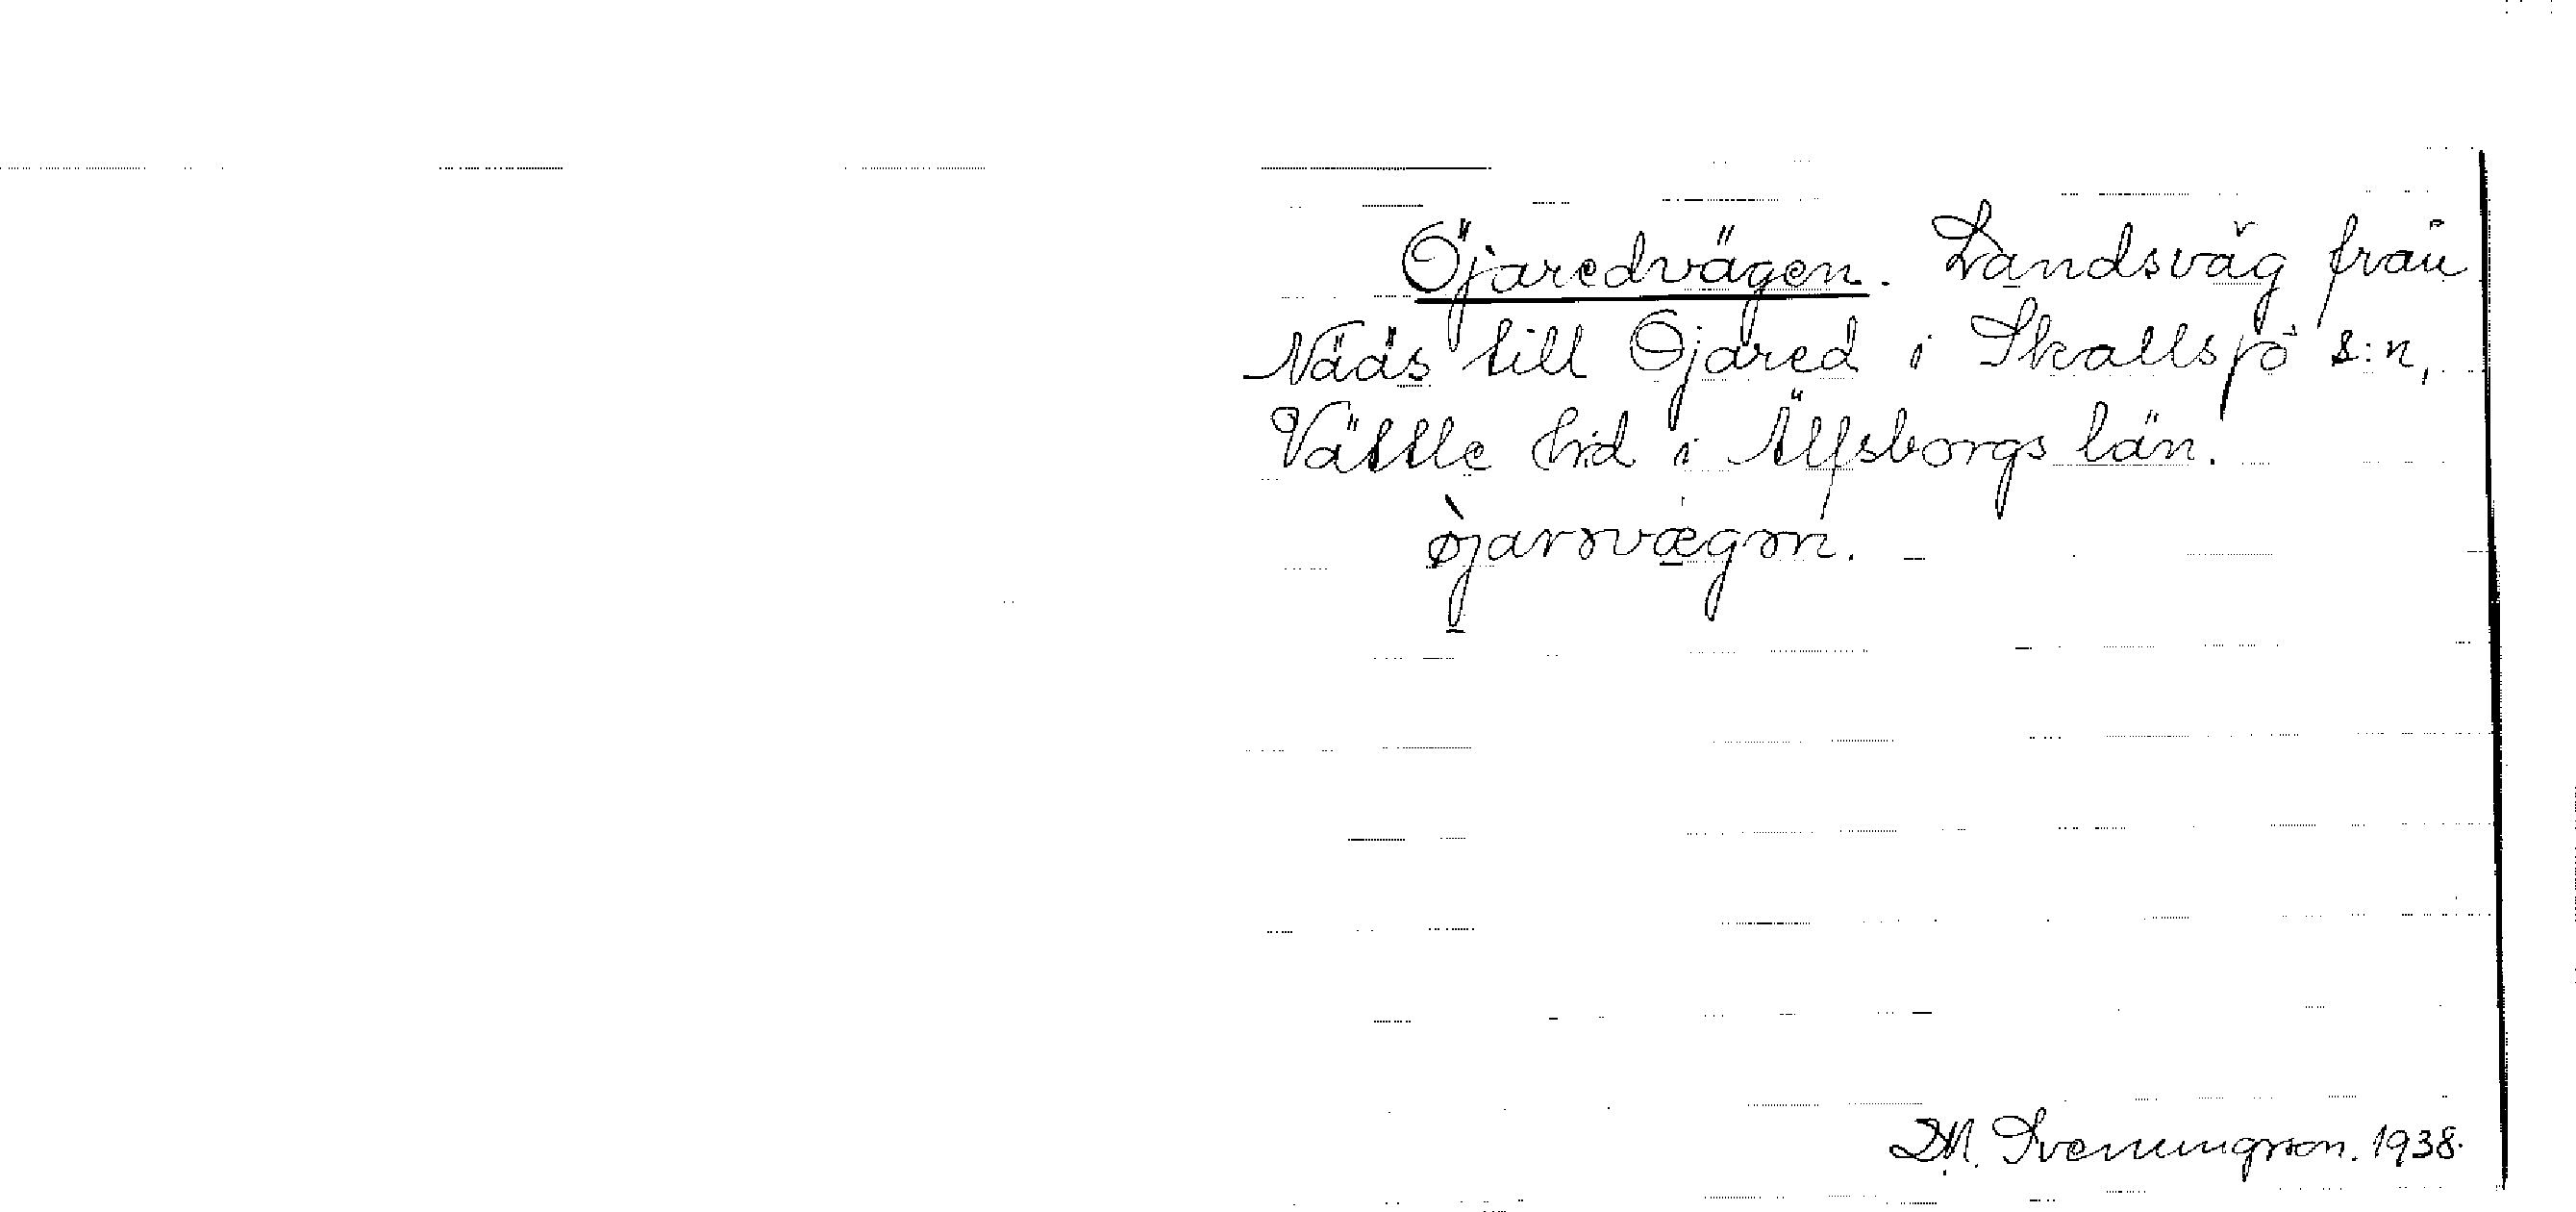 Öjaredvägen. Landsväg från
Nääs till Öjared i Skallsjö s:n,
Vättle hrd i Älfsborgs län.
ø̀jarəvægən.
D.M. Svenningsson. 1938.